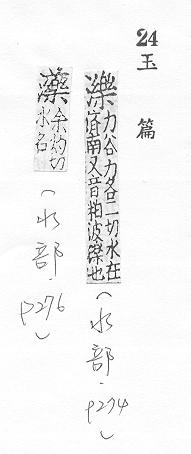 24玉篇
濼力谷力各二切水在
濟南又音粕波濼也
（水部．P274）
藻余約切
水名
（水部．P276）